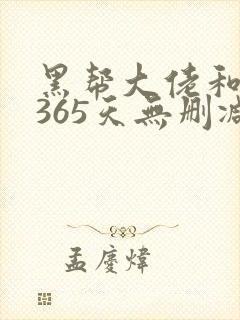 黑帮大佬和
365天無删减
孟慶煒